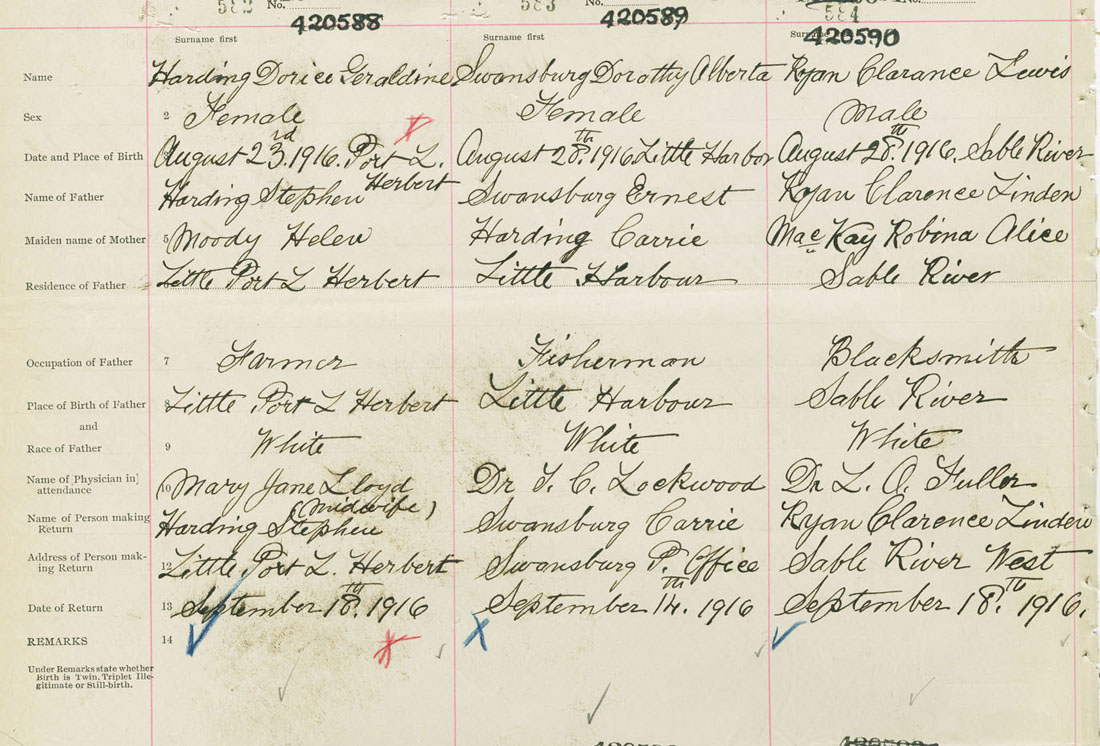 582 No. 583 No. 584
420588 420589 420590
Surname first Surname first
Name Harding Dorice Geraldine Swansburg Dorothy Alberta Ryan Clarance Lewis
Sex 2 Female Female Male
Date and Place of Birth August 23rd. 1916. Port L. Herbert August 28th. 1916 Little Harbor August 28th. 1916, Sable River
Name of Father Harding Stephen Swansburg Ernest Ryan Clarence Linden
Maiden name of Mother 5 Moody Helen Harding Carrie MacKay Robina Alice
Residence of Father Little Port L Herbert Little Harbour Sable River
Occupation of Father 7 Farmer Fisherman Blacksmith
Place of Birth of Father 8 Little Port L Herbert Little Harbour Sable River
and
Race of Father 9 White White White
Name of [Physician in] attendance 10 Mary Jane Lloyd (midwife) Dr. J. C. Lockwood Dr. L. O. Fuller
Name of Person making Return Harding Stephen Swansburg Carrie Ryan Clarence Linden
Address of Person making Return 12 Little Port L. Herbert Swansburg P. Office Sable River West
Date of Return 13 September 18th. 1916 September 14th. 1916 September 18th. 1916.
REMARKS 14
Under Remarks state whether
Birth is Twin, Triplet Ille-
gitimate or Still-birth.